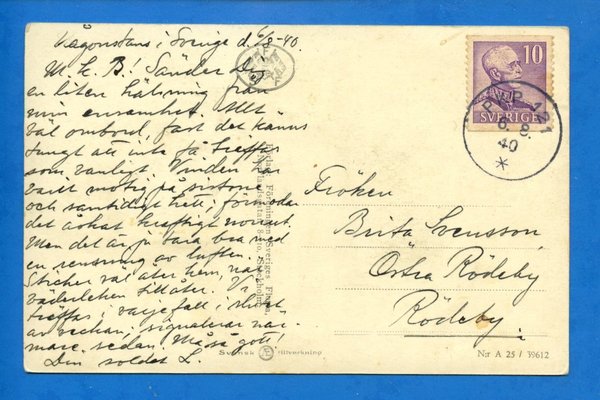 Någonstans i Sverige d. 6/8-40.
M. k. B! Sänder Dig
en liten hälsning från
min ensamhet. Allt
väl ombord, fast det känns
tungt att inte få träffas
som vanligt. Vinden har
varit motig på sistone
och samtidigt hett, förmodar
det åskat kraftigt norrut.
Men det är ju bara bra med
en rensning av luften.
väl åter hem, när
väderleken tillåter. Vi
träffas i varje fall i slutet
av veckan, signalerar när-
mare sedan. Må så gott!
Din soldat L.
10
SVERIGE
P P 121
6. 8.
40
*
Fröken
Brita Svensson,
Östra Rödeby
Rödeby.
Sveriges Flotta.
Stockholm
Svensk Æ tillverkning
N:r A 25 / 39612